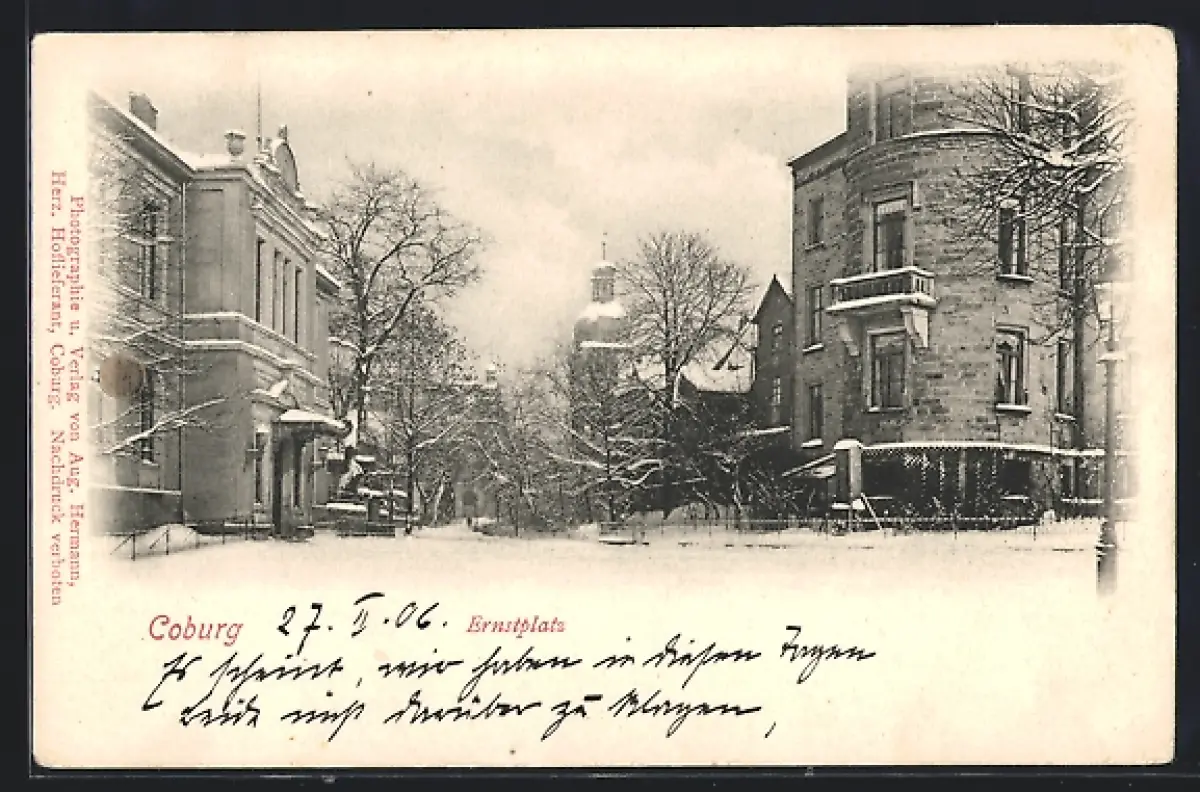 Photographie u. Verlag von Aug. Hermann,
Herz. Hoflieferant, Coburg. Nachdruck verboten
Coburg 27. II. 06. Ernstplatz
Es scheint, wir haben in diesen Tagen
beide nicht darüber zu klagen,